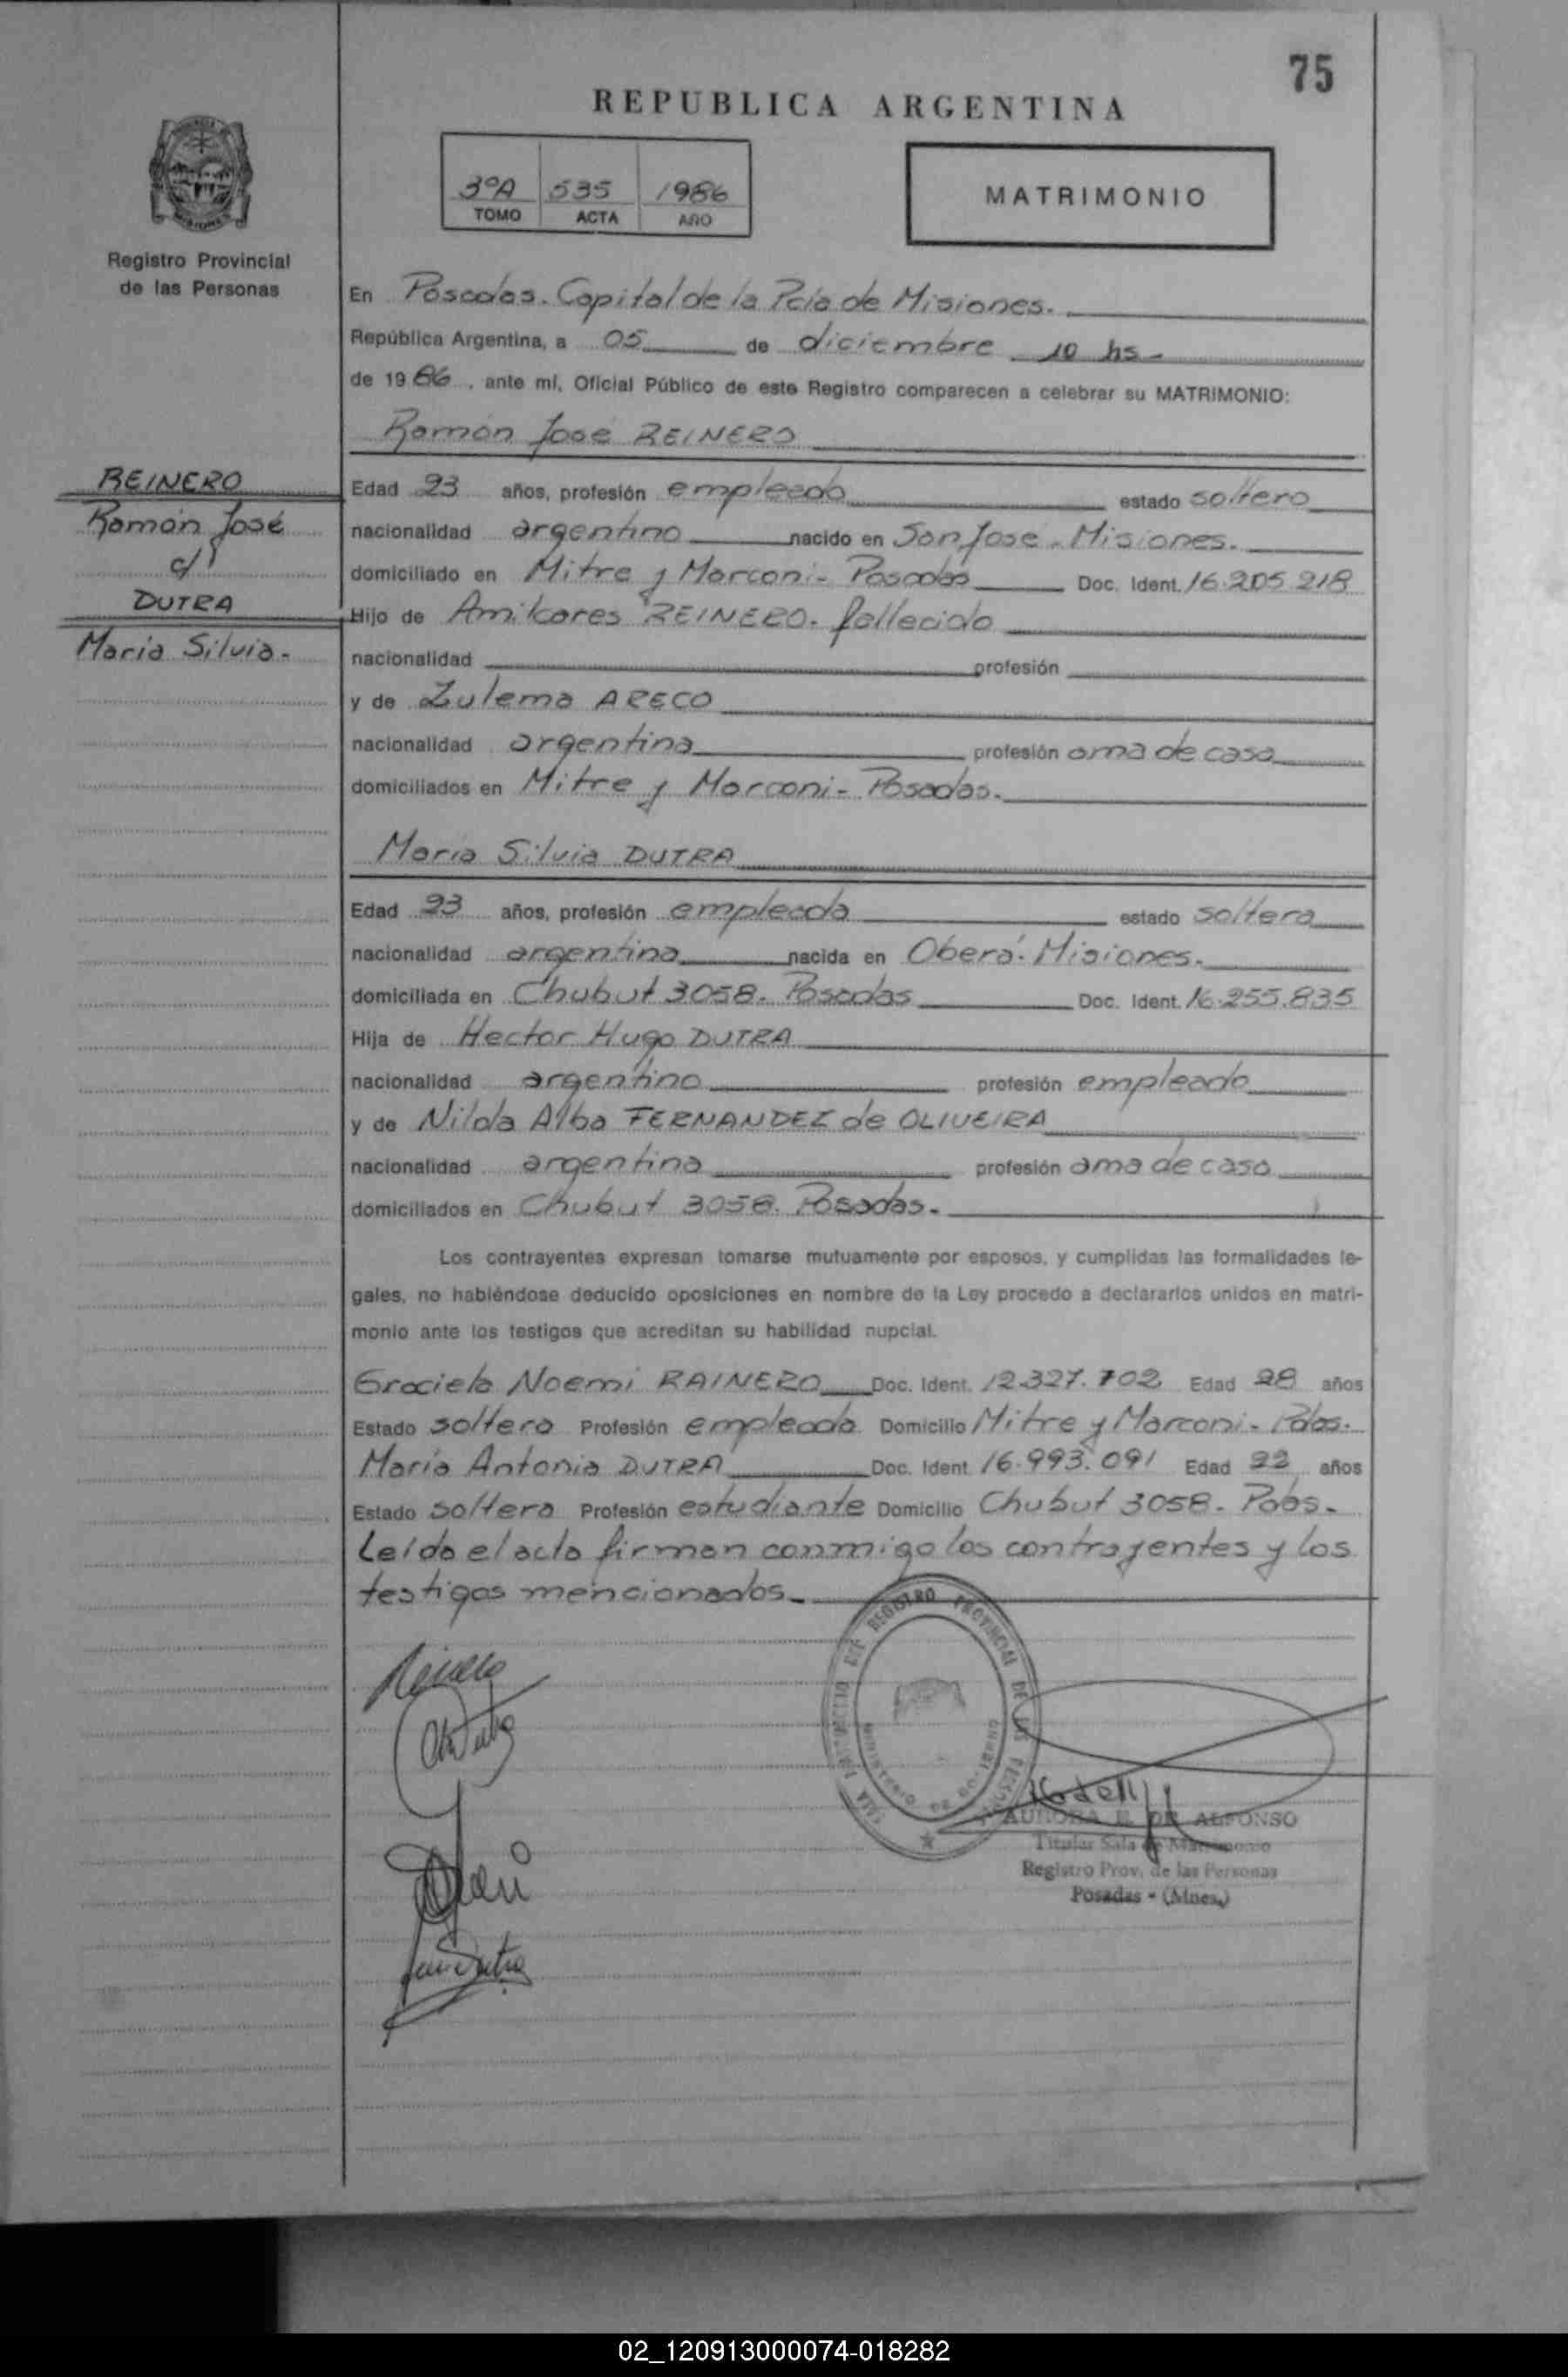 75
REPUBLICA ARGENTINA
3ºA 535 1986
TOMO ACTA AÑO
MATRIMONIO
Registro Provincial
de las Personas
En Posadas. Capital de la Pcia de Misiones.
República Argentina, a 05 de diciembre 10 hs-
de 1986, ante mí, Oficial Público de este Registro comparecen a celebrar su MATRIMONIO:
Ramón José REINERO
REINERO
Ramón José
c/
DUTRA
Maria Silvia-
Edad 23 años, profesión empleado estado soltero
nacionalidad argentino nacido en San José - Misiones.
domiciliado en Mitre y Marconi- Posadas Doc. Ident. 16.205.218
Hijo de Amilcares REINERO. fallecido
nacionalidad profesión
y de Zulema ARECO
nacionalidad argentina profesión ama de casa
domiciliados en Mitre y Marconi- Posadas.
María Silvia DUTRA
Edad 23 años, profesión empleada estado soltera
nacionalidad argentina nacida en Oberá. Misiones.
domiciliada en Chubut 3058. Posadas Doc. Ident. 16.255.835
Hija de Hector Hugo DUTRA
nacionalidad argentino profesión empleado
y de Nilda Alba FERNANDEZ de OLIVEIRA
nacionalidad argentina profesión ama de casa
domiciliados en Chubut 3058. Posadas.
Los contrayentes expresan tomarse mutuamente por esposos, y cumplidas las formalidades le-
gales, no habiéndose deducido oposiciones en nombre de la Ley procedo a declararlos unidos en matri-
monio ante los testigos que acreditan su habilidad nupcial.
Graciela Noemi RAINERO Doc. Ident. 12.327.702 Edad 28 años
Estado soltera Profesión empleada Domicilio Mitre y Marconi- Pdas.
María Antonia DUTRA Doc. Ident. 16.993.091 Edad 22 años
Estado soltera Profesión estudiante Domicilio Chubut 3058. Pdas.
Leída el acta firman conmigo los contrayentes y los
testigos mencionados.
REGISTRO PROVINCIAL DE LAS PERSONAS
MINISTERIO DE GOBIERNO
AURORA E. DE ALFONSO
Titular Sala de Matrimonio
Registro Prov. de las Personas
Posadas - (Mnes.)
02_120913000074-018282